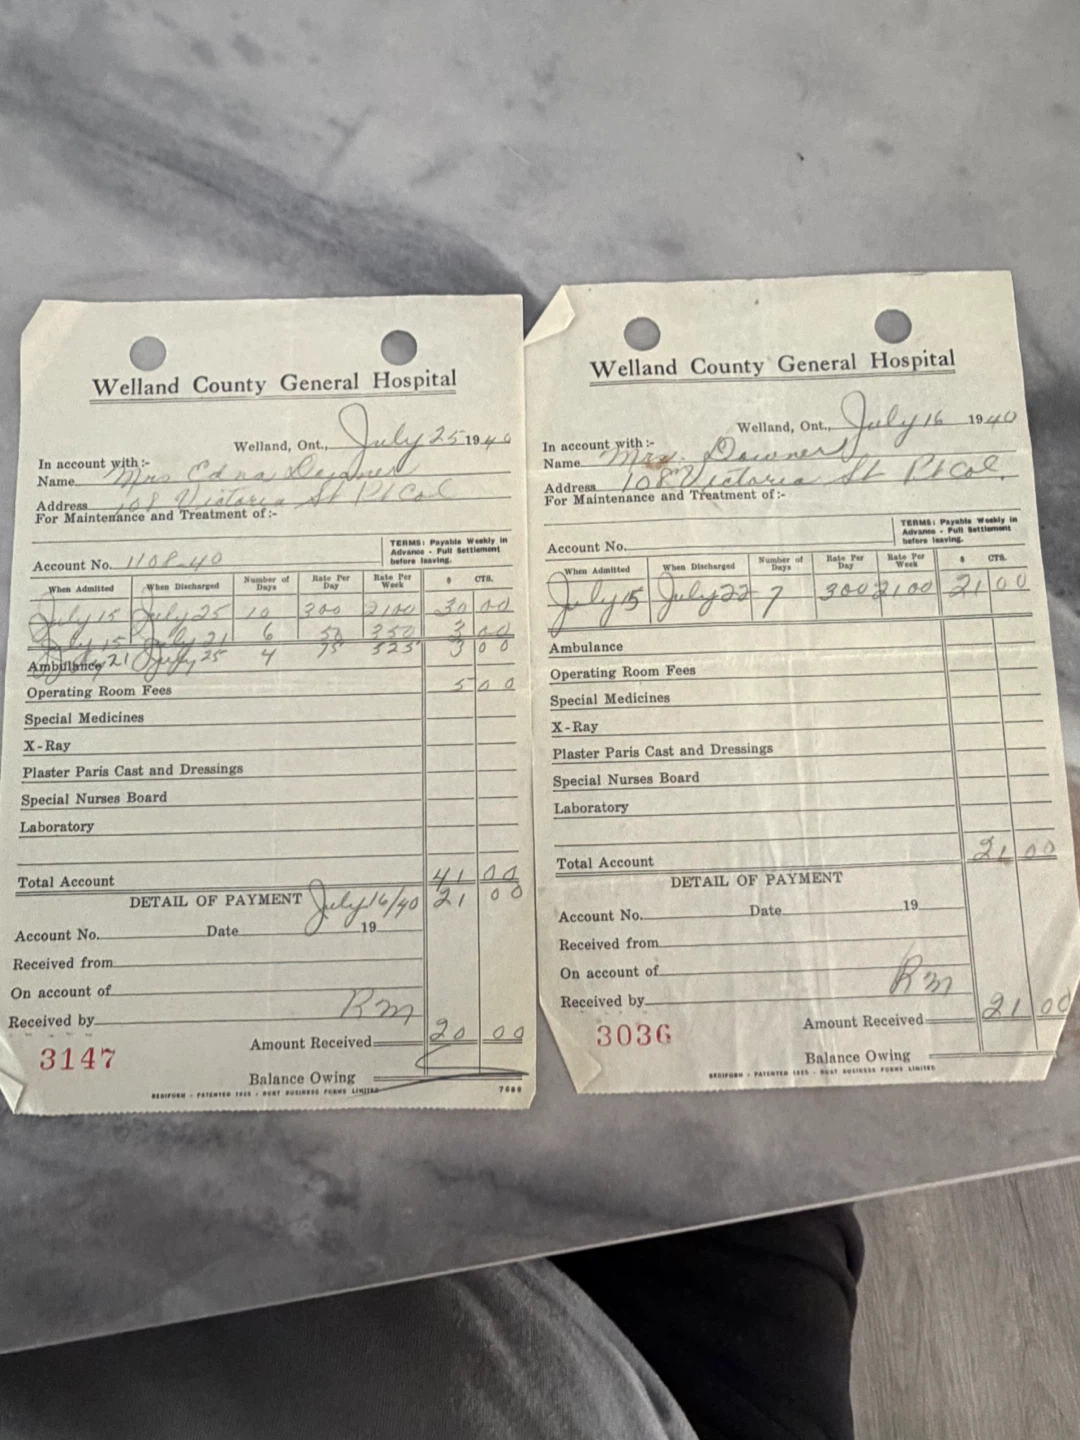 Welland County General Hospital
Welland, Ont., July 25 1940
In account with:-
Name Mrs Edna Downer
Address 108 Victoria St Pt Col
For Maintenance and Treatment of:-
TERMS: Payable Weekly in
Advance - Full Settlement
before leaving.
Account No. 1108-40
When Admitted When Discharged Number of Days Rate Per Day Rate Per Week $ CTS.
July 15 July 25 10 300 2100 30 00
July 15 July 21 6 50 350 3 00
July 21 July 25 4 75 525 3 00
Ambulance
Operating Room Fees 5 00
Special Medicines
X-Ray
Plaster Paris Cast and Dressings
Special Nurses Board
Laboratory
Total Account 41 00
DETAIL OF PAYMENT July 16/40 21 00
Account No. Date 19
Received from
On account of
Received by Rm
Amount Received 20 00
3147
Balance Owing
REDIFORM - PATENTED 1925 - BURT BUSINESS FORMS LIMITED 7688
Welland County General Hospital
Welland, Ont., July 16 1940
In account with:-
Name Mrs. Downer
Address 108 Victoria St Pt Col.
For Maintenance and Treatment of:-
TERMS: Payable Weekly in
Advance - Full Settlement
before leaving.
Account No.
When Admitted When Discharged Number of Days Rate Per Day Rate Per Week $ CTS.
July 15 July 22 7 300 2100 21 00
Ambulance
Operating Room Fees
Special Medicines
X-Ray
Plaster Paris Cast and Dressings
Special Nurses Board
Laboratory
Total Account 21 00
DETAIL OF PAYMENT
Account No. Date 19
Received from
On account of
Received by Rm
Amount Received 21 00
3036
Balance Owing
REDIFORM - PATENTED 1925 - BURT BUSINESS FORMS LIMITED